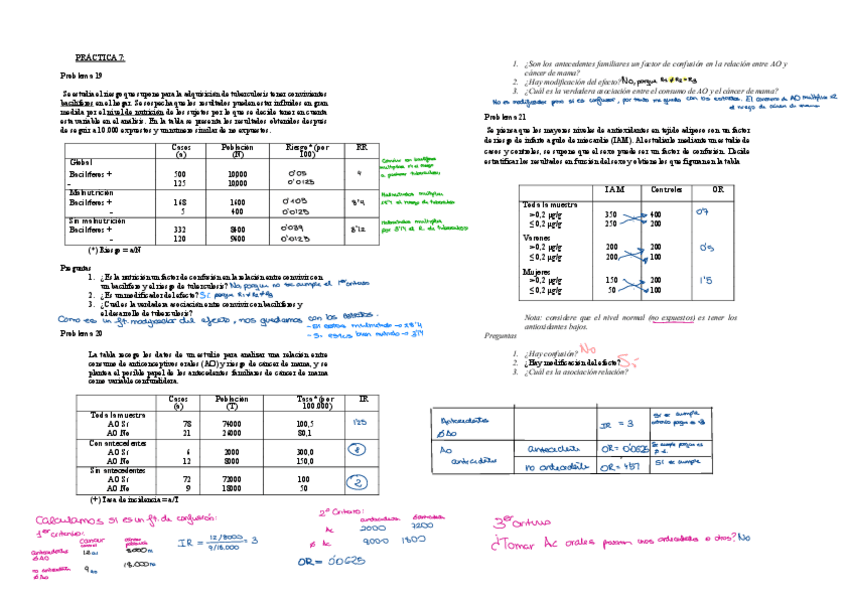 PRÁCTICA 7.
Problema 19
Se estudia el riesgo que supone para la adquisición de tuberculosis tener convivientes
bacilíferos en el hogar. Se sospecha que los resultados pueden estar influidos en gran
medida por el nivel de nutrición de los sujetos por lo que se decide tener en cuenta
esta variable en el análisis. En la tabla se presenta los resultados obtenidos después
de seguir a 10.000 expuestos y un número similar de no expuestos.
Casos (a) Población (N) Riesgo* (por 100) RR
Global
Bacilíferos + 500 10000 0'05 4
- 125 10,000 0'0125
Malnutrición
Bacilíferos + 168 1600 0'105 8'4
- 5 400 0'0125
Sin malnutrición
Bacilíferos + 332 8400 0'039
- 120 9600 0'0125
(*) Riesgo = a/N
Preguntas
1. ¿Es la nutrición un factor de confusión en la relación entre convivir con
un bacilífero y el riesgo de tuberculosis? No, porque no se cumple el 1er criterio
2. ¿Es un modificador del efecto? Sí porque
3. ¿Cuál es la verdadera asociación entre convivir con bacilíferos y
el desarrollo de tuberculosis?
Como es un ft. modificador del efecto, nos quedamos con los estratos.
- Si estás malnutrido → x8'4
- Si estás bien nutrido → 3'14
Problema 20
La tabla recoge los datos de un estudio para analizar una relación entre
consumo de anticonceptivos orales (AO) y riesgo de cáncer de mama, y se
plantea el posible papel de los antecedentes familiares de cáncer de mama
como variable confundidora.
Casos (a) Población (T) Tasa* (por 100.000) IR
Toda la muestra
AO Sí 78 74000 100,5 1'25
AO No 21 24000 80,1
Con antecedentes
AO Sí 6 2000 300,0 2
AO No 12 8000 150,0
Sin antecedentes
AO Sí 72 72000 100 2
AO No 9 18000 50
(*) Tasa de incidencia = a/T
Calculamos si es un ft. de confusión:
1er criterio:
cáncer
antecedentes
∅ AO
12
8000
no antecedentes
∅ AO
9
18.000
IR = 12/8000 / 9/18.000 = 3
2º Criterio:
antecedentes
Ac 2000 7200
∅ Ac
OR = 0'0625
1. ¿Son los antecedentes familiares un factor de confusión en la relación entre AO y
cáncer de mama?
2. ¿Hay modificación del efecto? No, porque
3. ¿Cuál es la verdadera asociación entre el consumo de AO y el cáncer de mama?
No es modificador pero sí es confusor, por tanto me quedo con los estratos. El consumo de AO multiplica x2
el riesgo de cáncer de mama
Problema 21
Se piensa que los mayores niveles de antioxidantes en tejido adiposo son un factor
de riesgo de infarto agudo de miocardio (IAM). Al estudiarle mediante un estudio de
casos y controles, se supone que el sexo puede ser un factor de confusión. Decide
estratificar los resultados en función del sexo y obtiene los que figuran en la tabla
IAM Controles OR
Toda la muestra
>0,2 µg/g 350 400 0'7
≤0,2 µg/g 250 200
Varones
>0,2 µg/g 200 200 0'5
≤0,2 µg/g 200 100
Mujeres
>0,2 µg/g 150 200 1'5
≤0,2 µg/g 50 100
Nota: considere que el nivel normal (no expuestos) es tener los
antioxidantes bajos.
Preguntas
1. ¿Hay confusión? No
2. ¿Hay modificación del efecto? Sí
3. ¿Cuál es la asociación relación?
Antecedentes
∅ AO
IR = 3
Si se cumple
AO
antecedentes
antecedente OR = 0'0625
no antecedente OR = 4'57 Si se cumple
3er criterio
¿Tomar Ac orales antecedentes u otros? No